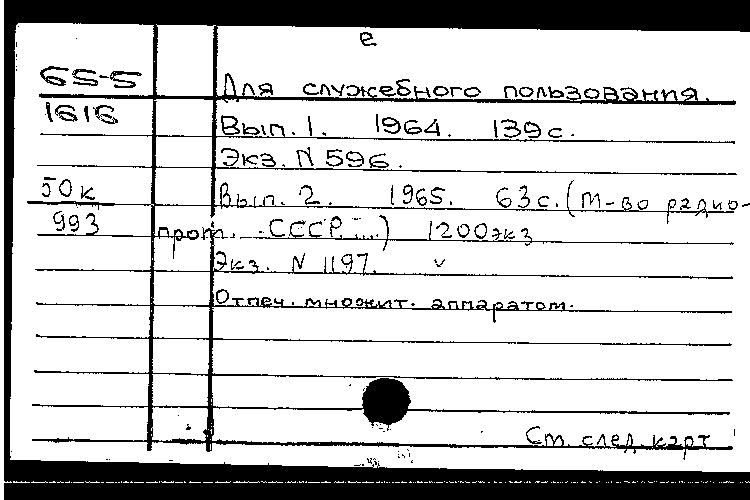 е
65-5
Для служебного пользования.
1616
Вып. 1. 1964. 139с.
Экз. N 596.
50к
Вып. 2. 1965. 63с. (М-во радио-
993
пром. СССР...) 1200экз
Экз. N 1197. v
Отпеч. множит. аппаратом.
См. след. карт